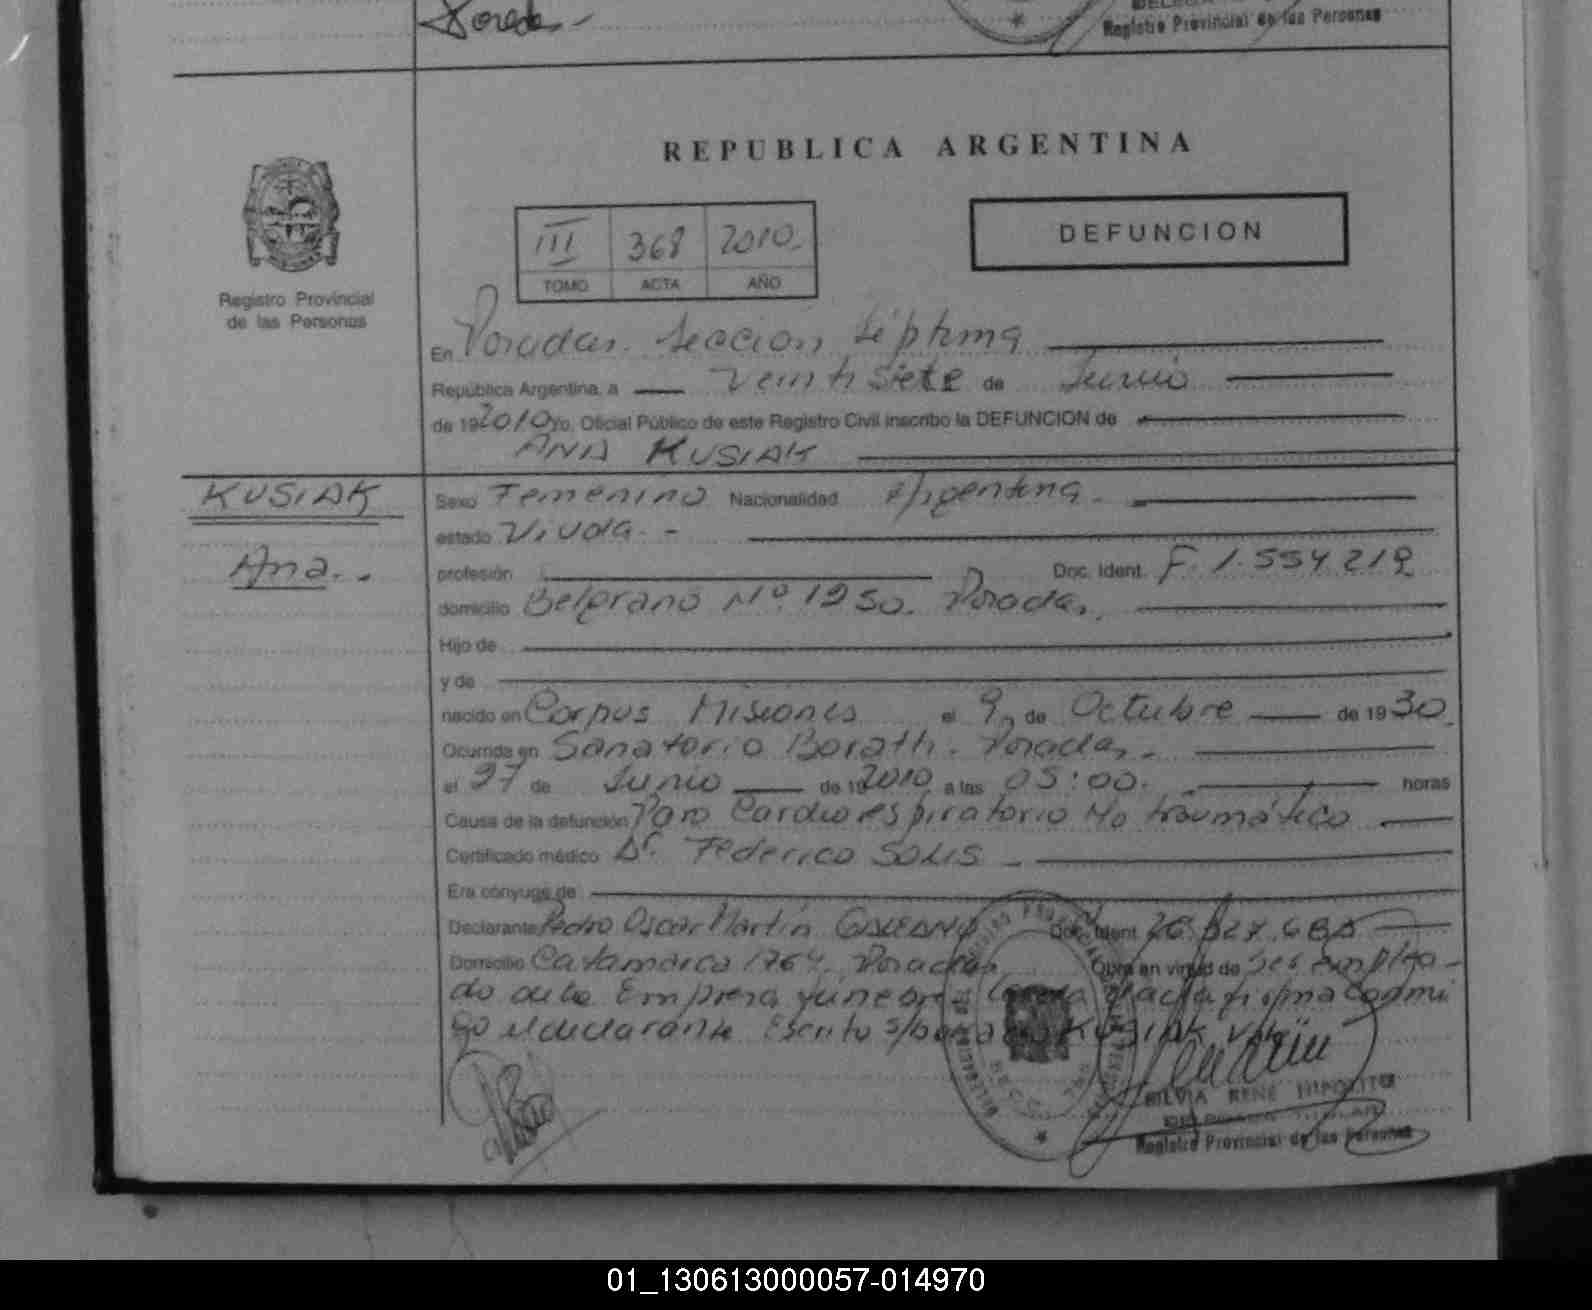 Registro Provincial de las Personas
REPUBLICA ARGENTINA
III 368 2010.
TOMO ACTA AÑO
DEFUNCION
Registro Provincial
de las Personas
En Posadas. Sección Séptima
República Argentina, a veintisiete de Junio
de 192010 Yo, Oficial Público de este Registro Civil inscribo la DEFUNCION de
ANA KUSIAK
KUSIAK
Ana..
Sexo Femenino Nacionalidad Argentina.
estado Viuda.-
profesión Doc. Ident. F. 1.554.219
domicilio Belgrano Nº 1950. Posadas.
Hijo de
y de
nacido en Corpus Misiones el 9 de Octubre de 1930
Ocurrida en Sanatorio Boratti. Posadas.
el 27 de Junio de 192010 a las 05:00. horas
Causa de la defunción Paro Cardiorespiratorio No traumático
Certificado médico Dr. Federico SOLIS
Era cónyuge de
Declarante Pedro Oscar Martín Doc. Ident. 26.
Domicilio Catamarca 1764. Posadas Obra en virtud de ser emplea-
do de la Empresa fúnebre acta firma conmi
go el declarante. Escrito s/ KUSIAK
SILVIA RENE HIPOLITO
Registro Provincial de las Personas
01_130613000057-014970